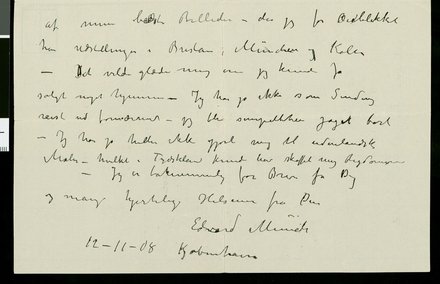 af mine bedste Billeder – da jeg for Øieblikket
har udstillinger i Breslau, München og Kølen
– Det vilde glæde mig om jeg kunde få
solgt noget hjemme – Jeg har jo ikke som Sinding
reist ud – jeg ble simpelthen jaget bort
– Jeg har jo heller ikke gjort mig til udenlandsk
Maler – hvilket i Tyskland kunde ha skaffet mig Rigdomme
– Jeg er taknemmelig for Brev fra Dig
og mange hjertelige Hilsener fra Din
Edvard Munch
12–11–08 Kjøbenhavn